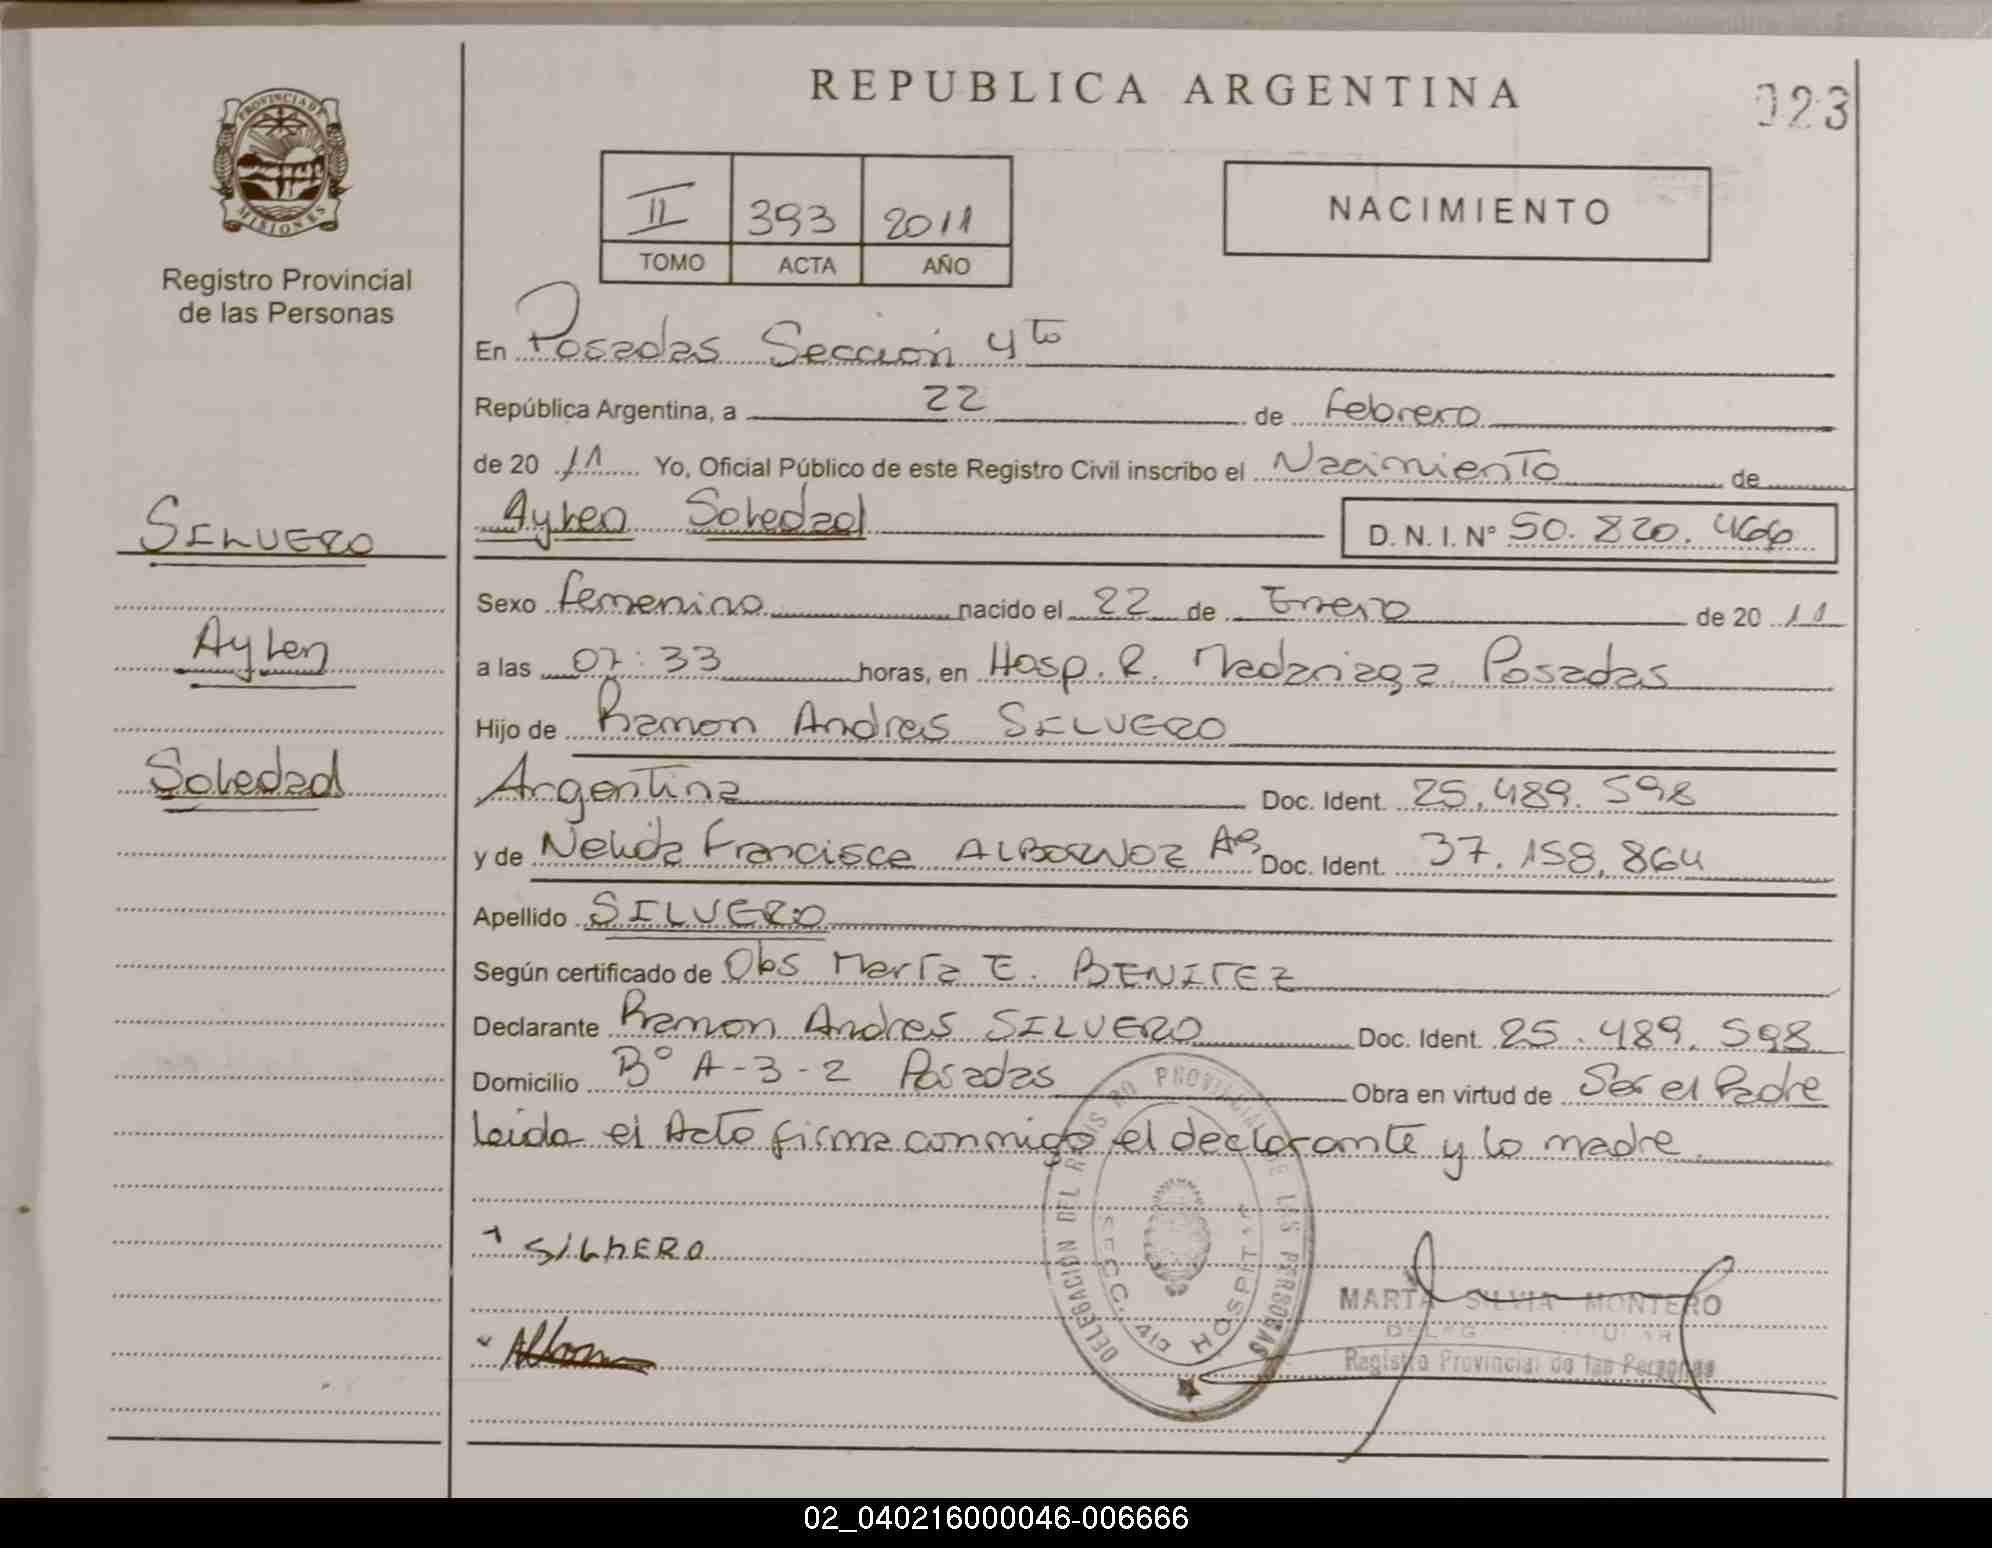 REPUBLICA ARGENTINA
023
PROVINCIA DE
MISIONES
Registro Provincial
de las Personas
II 393 2011
TOMO ACTA AÑO
NACIMIENTO
En Posadas Sección 4to
República Argentina, a 22 de Febrero
de 20 11 Yo, Oficial Público de este Registro Civil inscribo el Nacimiento de
Aylen Soledad D. N. I. N° 50.820.466
SILVERO
Aylen
Soledad
Sexo femenino nacido el 22 de Enero de 20 11
a las 07:33 horas, en Hosp. R. Madariaga Posadas
Hijo de Ramon Andres SILVERO
Argentina Doc. Ident. 25.489.598
y de Nelida Francisca ALBORNOZ Ag Doc. Ident. 37.158.864
Apellido SILVERO
Según certificado de Obs Marta E. BENITEZ
Declarante Ramon Andres SILVERO Doc. Ident. 25.489.598
Domicilio B° A-3-2 Posadas Obra en virtud de Ser el Padre
leida el Acta firma conmigo el declarante y la madre
SILVERO
DELEGACIÓN DEL REGISTRO PROVINCIAL DE LAS PERSONAS
SECC. 4ta HOSPITAL
MARTA SILVIA MONTERO
Registro Provincial de las Personas
02_040216000046-006666